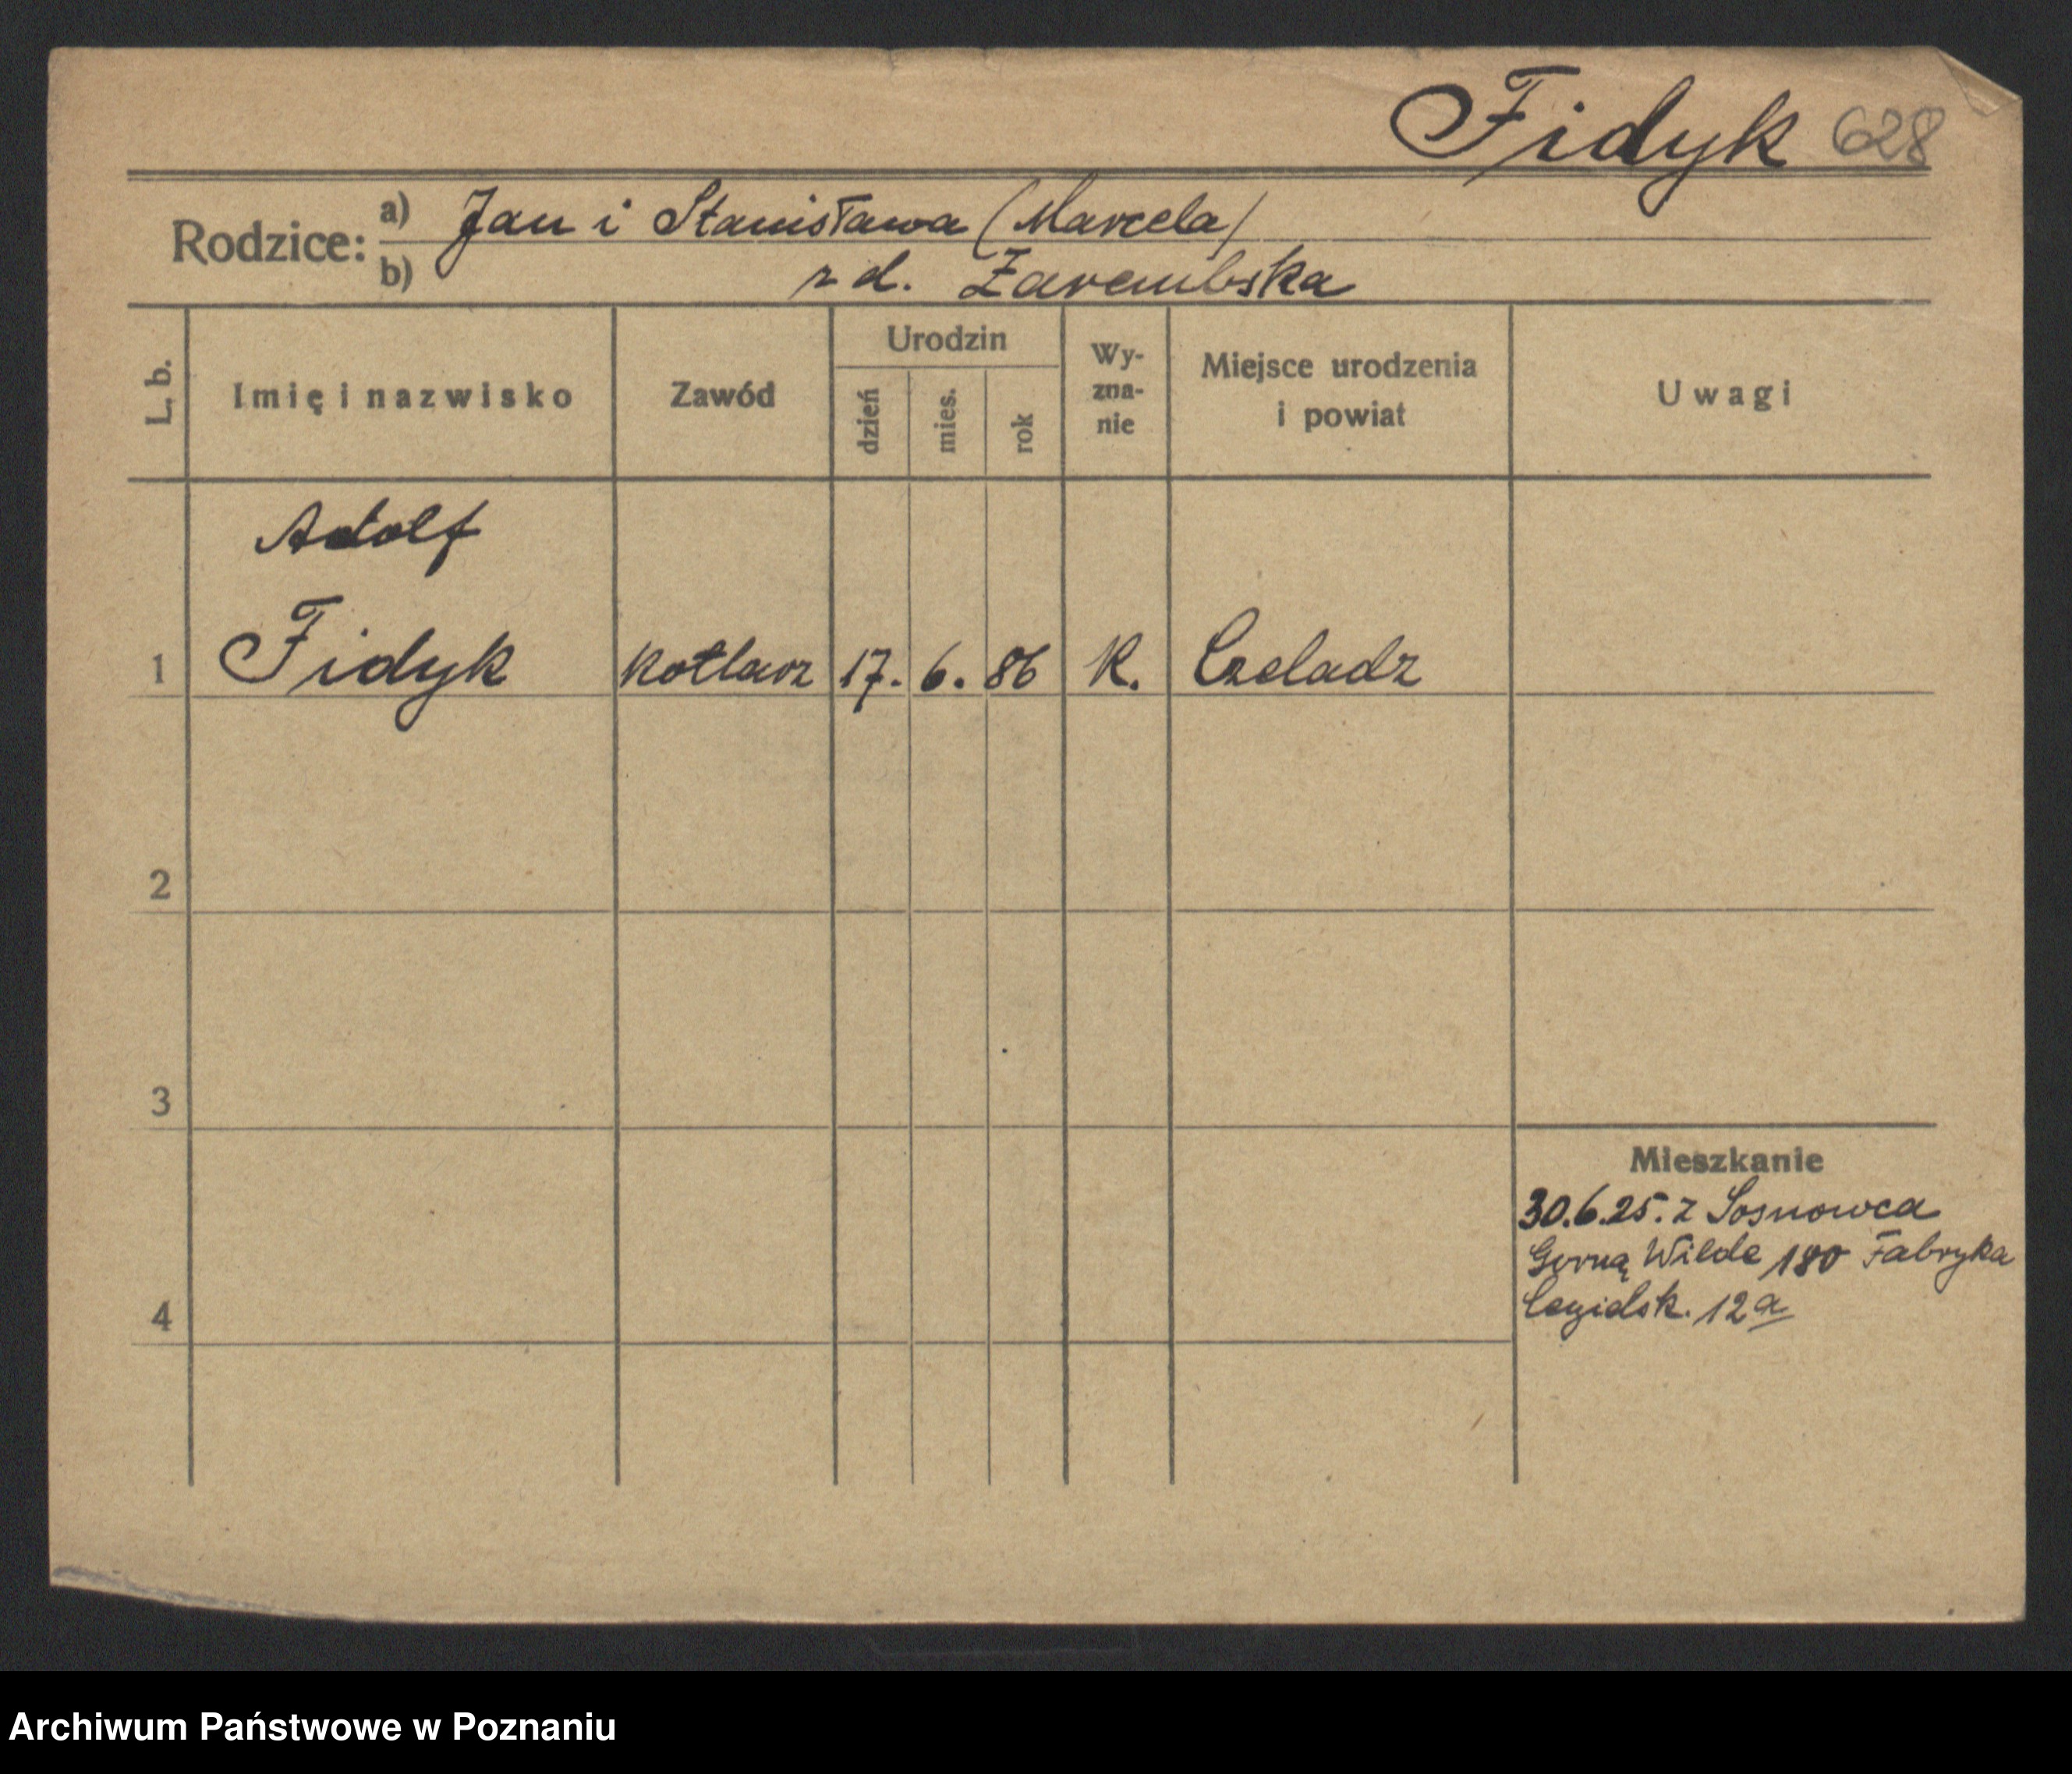 Fidyk 628
Rodzice: a) Jan i Stanisława (Marcela)
b) z d. Zarembska
L. b. Imię i nazwisko Zawód Urodzin dzień mies. rok Wy-zna-nie Miejsce urodzenia i powiat Uwagi
Adolf
1 Fidyk kotlarz 17. 6. 86 K. Czeladz
2
3
Mieszkanie
30.6.25. z Sosnowca
Gorną Wilde 180 Fabryka
4 12a
Archiwum Państwowe w Poznaniu